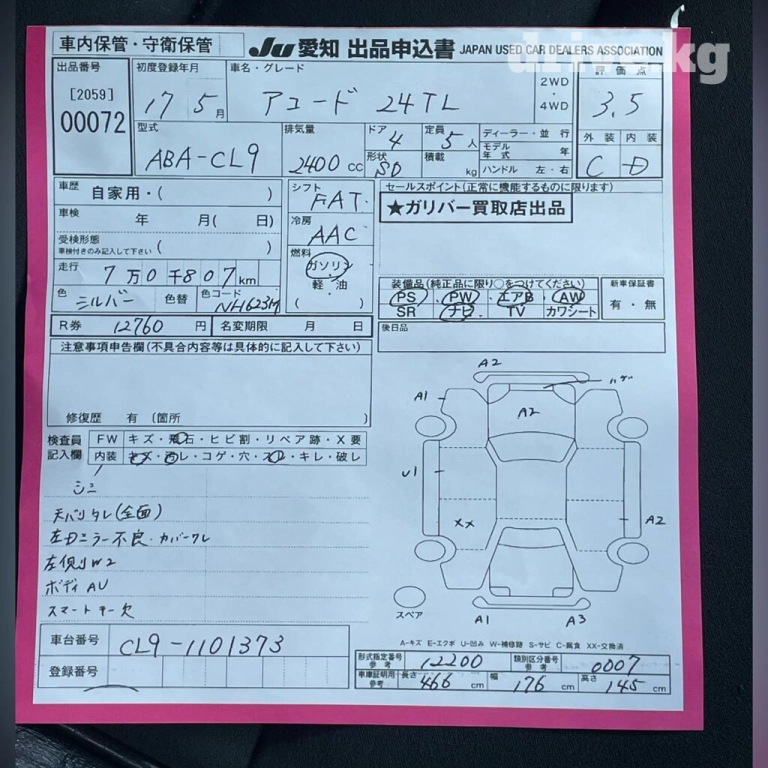 drive.kg
車内保管・守衛保管
Ju 愛知 出品申込書 JAPAN USED CAR DEALERS ASSOCIATION
出品番号 初度登録年月 車名・グレード 2WD・4WD 評価点
[2059] 00072
17 5月 アコード 24TL 3.5
型式 排気量 ドア 定員 ディーラー・並行 外装 内装
ABA-CL9 2400cc 4 5人 モデル年式 年
形状 SD 積載 kg ハンドル 左・右 C D
車歴 自家用・( )
シフト FAT
セールスポイント(正常に機能するものに限ります)
★ガリバー買取店出品
車検 年 月( 日)
冷房 AAC
受検形態 車検付きのみ記入して下さい ( )
燃料 ガソリン・軽油 ( )
走行 7万0千807km
装備品(純正品に限り○をつけてください) 新車保証書
PS・PW・エアB・AW 有・無
SR ナビ・TV カワシート
色 シルバー 色替 色コード NH623M
R券 12760円 名変期限 月 日
後日品
注意事項申告欄(不具合内容等は具体的に記入して下さい)
修復歴 有 〔箇所 〕
検査員記入欄 FW キズ・飛石・ヒビ割・リペア跡・X要
内装 キズ・汚レ・コゲ・穴・スレ・キレ・破レ
シミ
天バリタレ(全面)
左Dミラー不良・カバーワレ
左側W2
ボディAU
スマートキー欠
A2
ハゲ
A1 A2
U1
XX A2
スペア
A1 A3
A-キズ E-エクボ U-凹み W-補修跡 S-サビ C-腐食 XX-交換済
車台番号 CL9-1101373
登録番号
形式指定番号 参考 12200 類別区分番号 参考 0007
車庫証明用 参考 長さ 466cm 幅 176cm 高さ 145cm